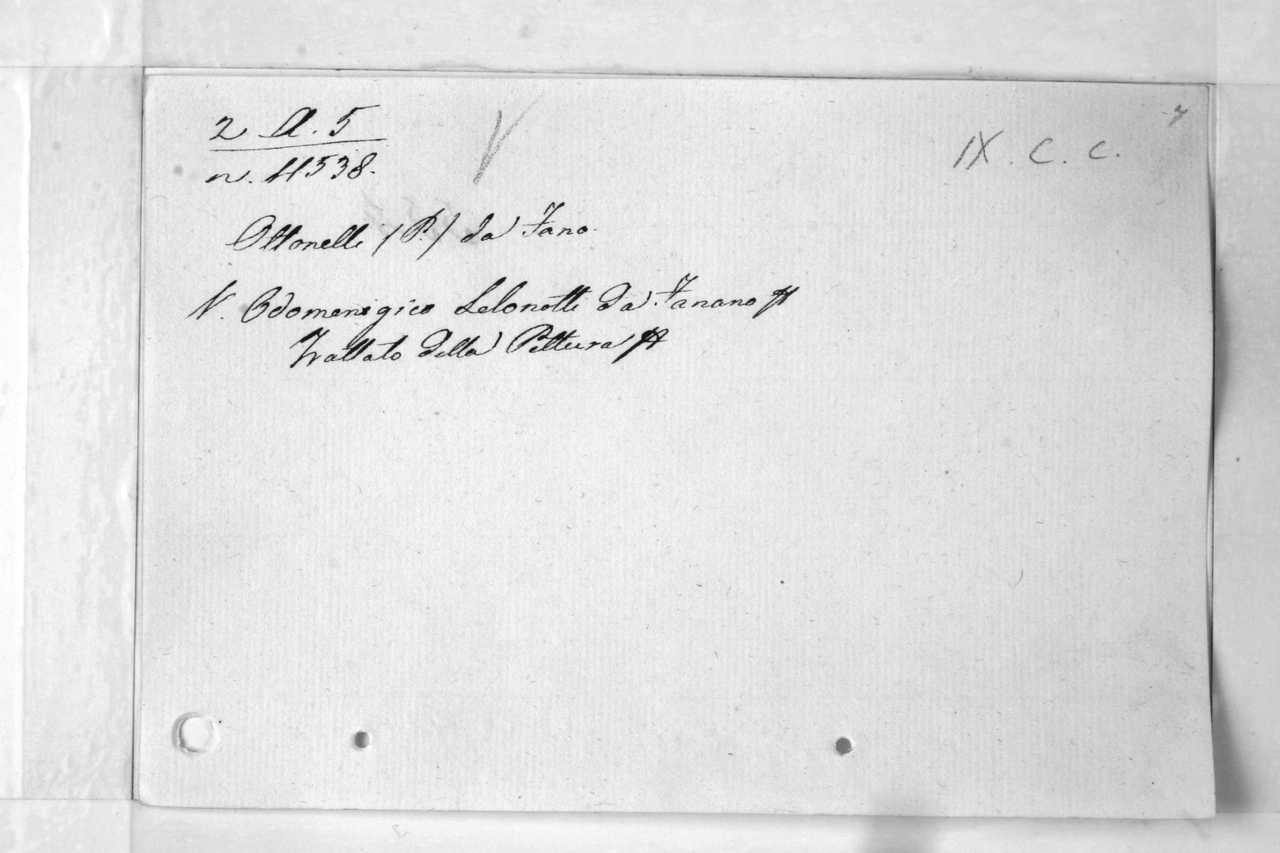 2 A. 5
n. 11538.
V
IX. C. C.
Ottonelli (P.) da Fano.
V. Odomenigico Lelonotti da Fanano #
Trattato della Pittura #